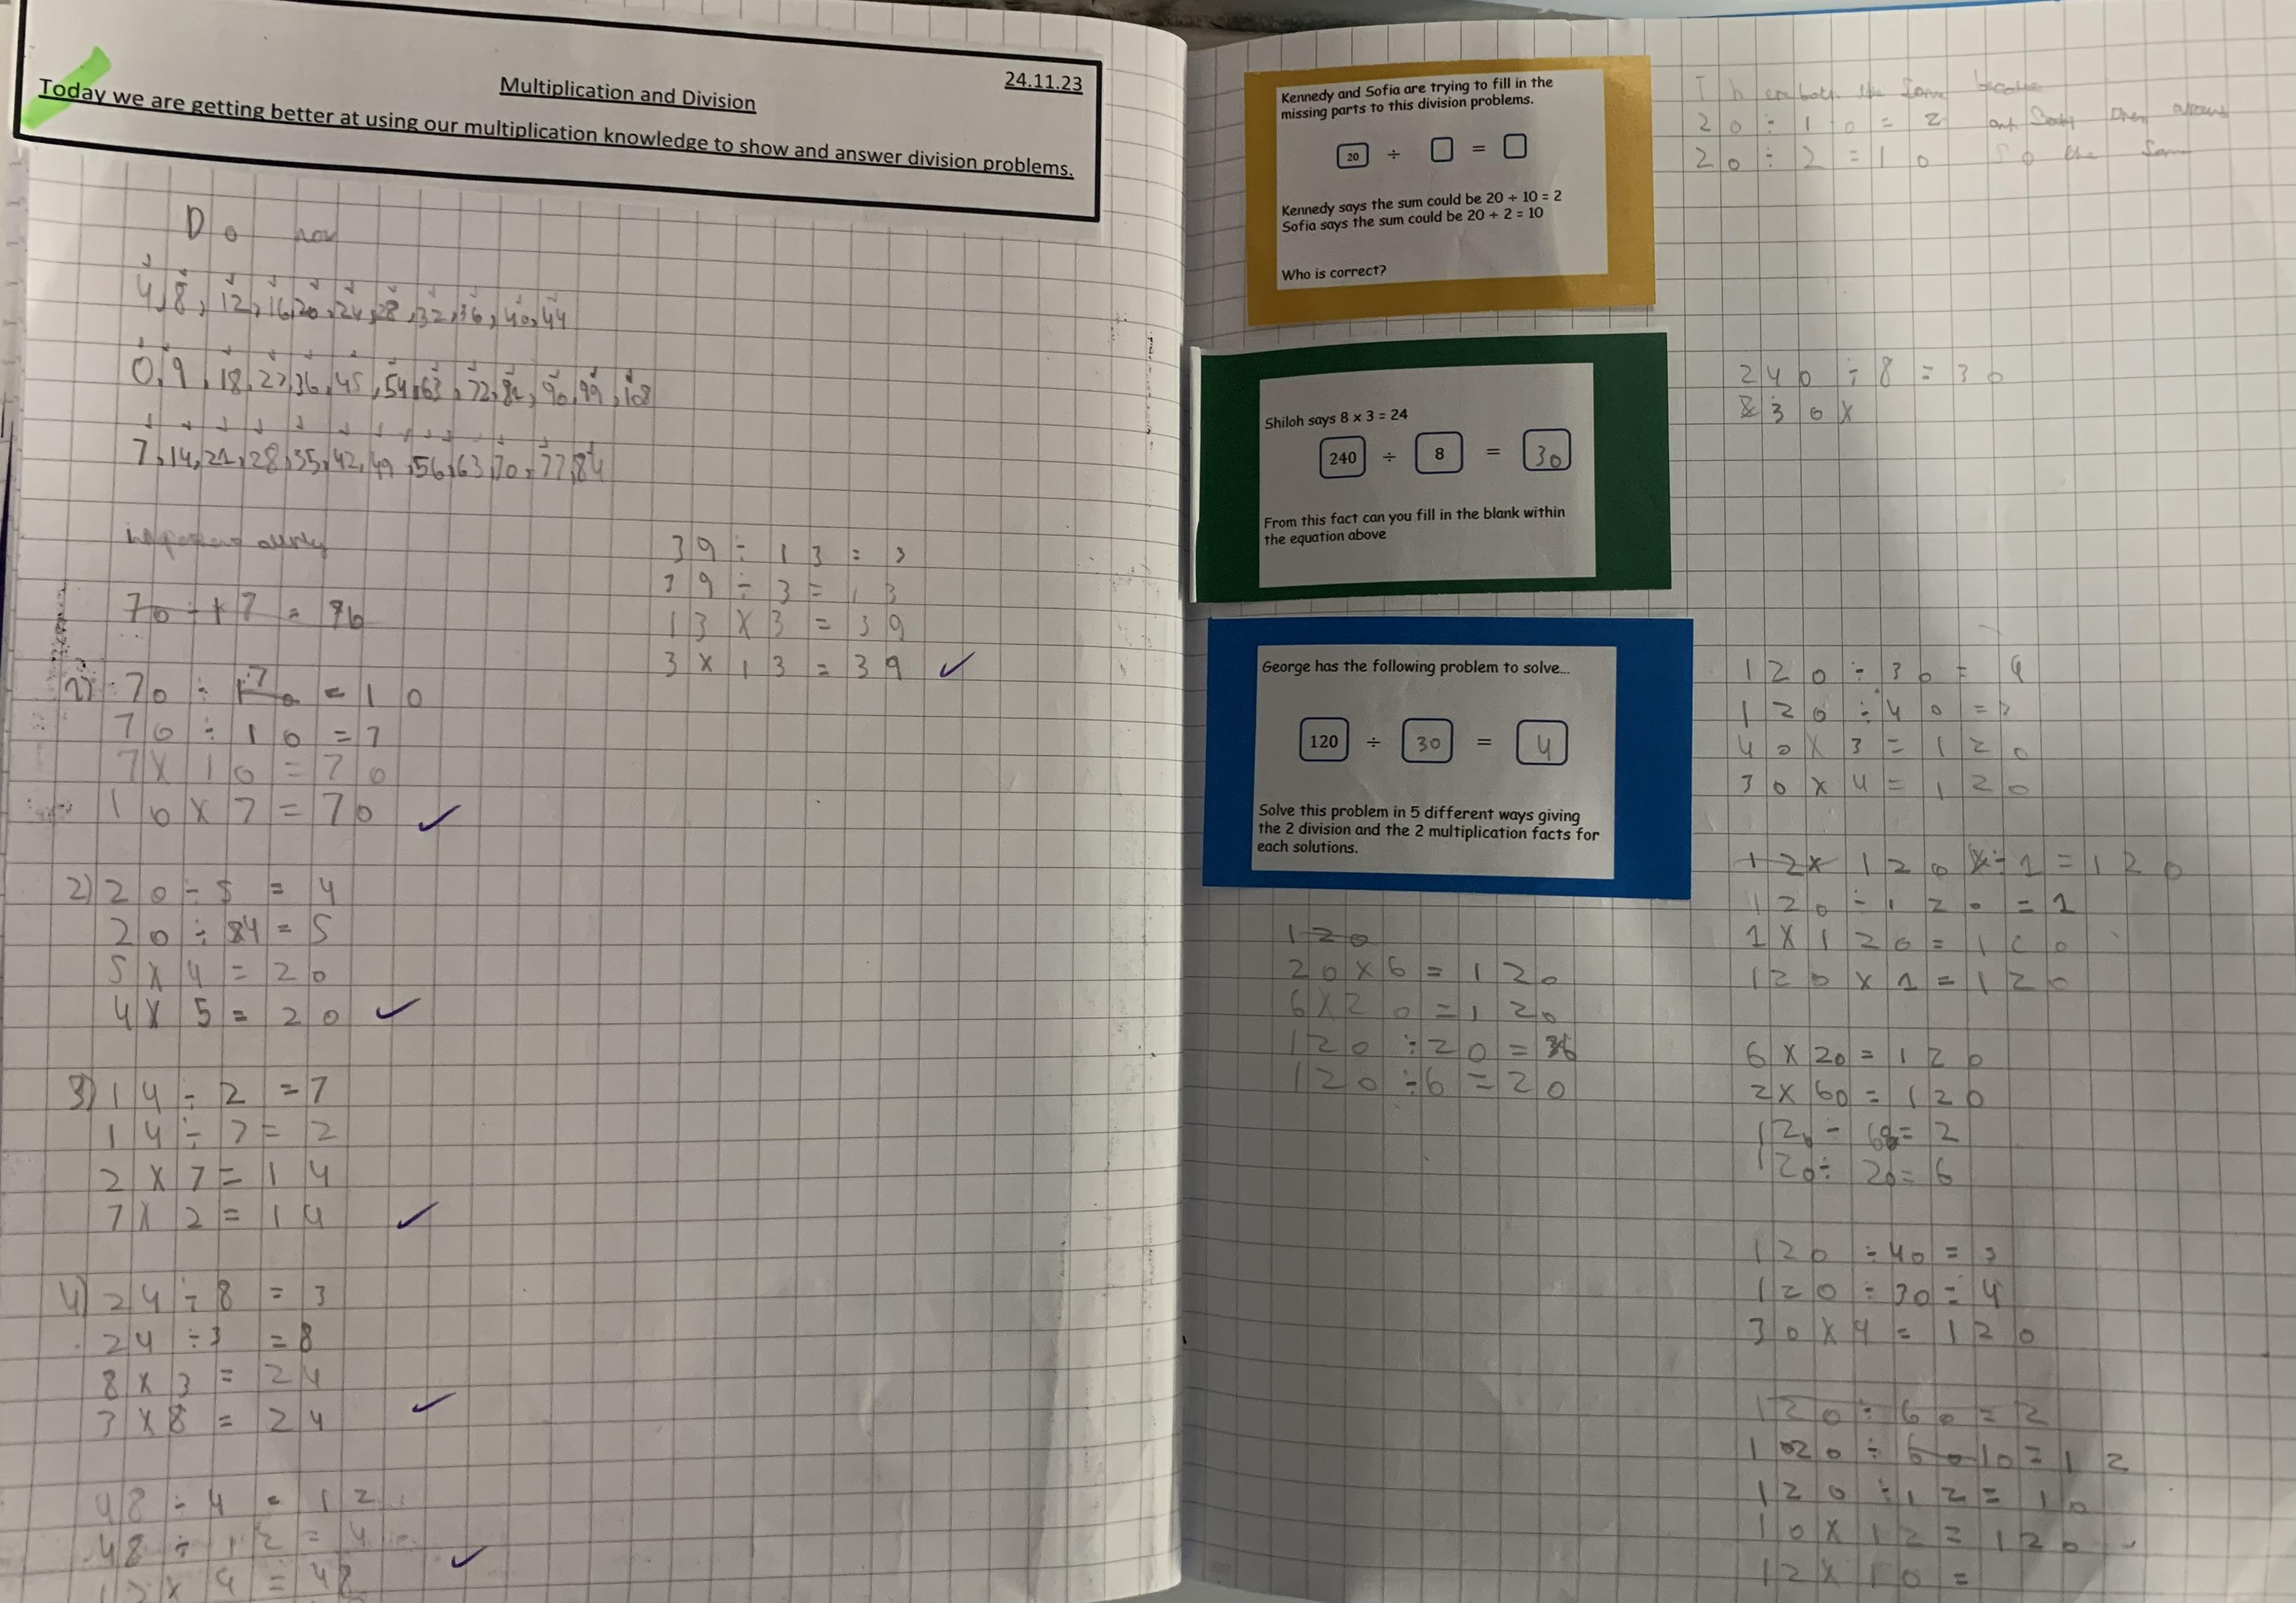 24.11.23
Multiplication and Division
Today we are getting better at using our multiplication knowledge to show and answer division problems.
Do now
4, 8, 12, 16, 20, 24, 28, 32, 36, 40, 44
0, 9, 18, 27, 36, 45, 54, 63, 72, 81, 90, 99, 108
7, 14, 21, 28, 35, 42, 49, 56, 63, 70, 77, 84
1) 70 ÷ 7 = 10
70 ÷ 10 = 7
7 x 10 = 70
10 x 7 = 70
2) 20 ÷ 5 = 4
20 ÷ 4 = 5
5 x 4 = 20
4 x 5 = 20
3) 14 ÷ 2 = 7
14 ÷ 7 = 2
2 x 7 = 14
7 x 2 = 14
4) 24 ÷ 8 = 3
24 ÷ 3 = 8
8 x 3 = 24
3 x 8 = 24
48 ÷ 4 = 12
48 ÷ 12 = 4
12 x 4 = 48
39 ÷ 13 = 3
39 ÷ 3 = 13
13 x 3 = 39
3 x 13 = 39
Kennedy and Sofia are trying to fill in the
missing parts to this division problems.
20 ÷ =
Kennedy says the sum could be 20 ÷ 10 = 2
Sofia says the sum could be 20 ÷ 2 = 10
Who is correct?
the same
20 ÷ 10 = 2 them around
20 ÷ 2 = 10 So the same
Shiloh says 8 x 3 = 24
240 ÷ 8 = 30
From this fact can you fill in the blank within
the equation above
240 ÷ 8 = 30
George has the following problem to solve...
120 ÷ 30 = 4
Solve this problem in 5 different ways giving
the 2 division and the 2 multiplication facts for
each solutions.
120
20 x 6 = 120
6 x 20 = 120
120 ÷ 20 = 6
120 ÷ 6 = 20
120 ÷ 30 = 4
120 ÷ 40 = 3
40 x 3 = 120
30 x 4 = 120
120 ÷ 1 = 120
120 ÷ 120 = 1
1 x 120 = 120
120 x 1 = 120
6 x 20 = 120
2 x 60 = 120
120 ÷ 60 = 2
120 ÷ 20 = 6
120 ÷ 40 = 3
120 ÷ 30 = 4
30 x 4 = 120
120 ÷ 60 = 2
120 ÷ 10 = 12
120 ÷ 12 = 10
10 x 12 = 120
12 x 10 =